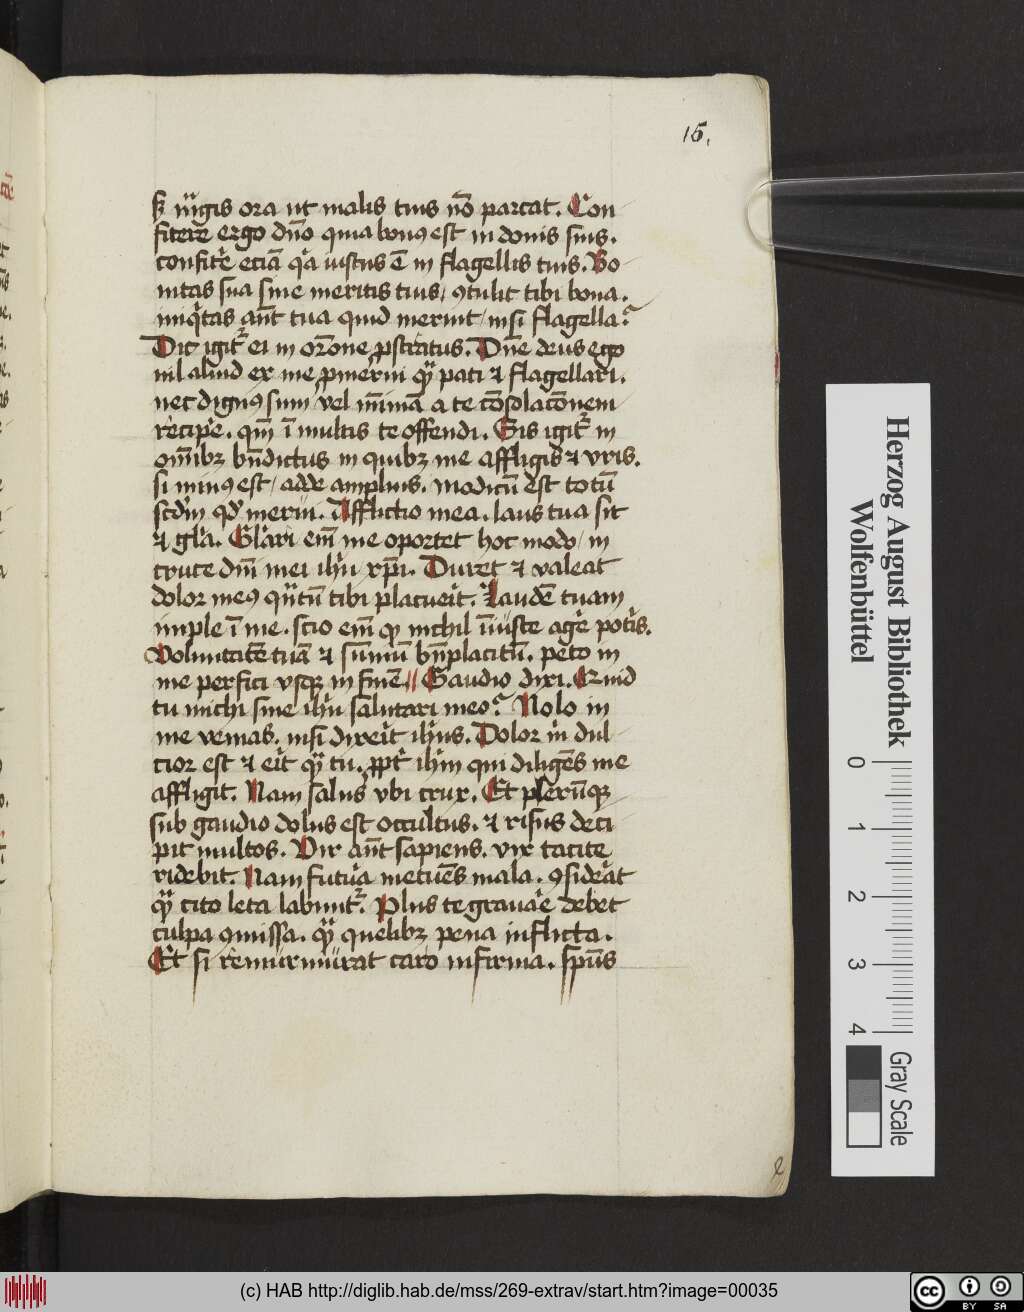 15.
sꝫ mͣgis ora ut malis tuis nō parcat. Con
fitere ergo dn̄o quia bonꝰ est in donis suis.
confitēr eciā qͥa iustus ē in flagellis tuis. Bo
nitas sua sine meritis tuis / ꝯtulit tibi bona.
iniqͥtas aūt tua quid meruit / nisi flagella?
Dic igitᷣ ei in orōne ꝓstratus. Dn̄e deus ego
nil aliud ex me ꝓmerui qͣꝫ pati ⁊ flagellari.
nec dignꝰ sum vel mīmā a te cōsolacōnem
recipe. qm̄ ī multis te offendi. Sis igitᷣ in
om̄ibꝫ bn̄dictus in quibꝫ me affligis ⁊ vris.
si minꝰ est / adde amplius. modicū est totū
scd̄m qd̓ merui. Afflictio mea. laus tua sit
⁊ gl̄a. Gl̄ari em̄ me oportet hoc modo / in
cruce dn̄i mei ih̄u xp̄i. Duret ⁊ valeat
dolor meꝰ qn̄tū tibi placuerit. Laudē tuam
imple ī me. scio em̄ qꝫ nichil īiuste agēr potīs.
Voluntatē tuā ⁊ sūmū bn̄placitū. peto in
me perfici vsqꝫ in finē. Gaudio dixi. Quid
tu michi sine ih̄u salutari meo? Nolo in
me venias. nisi dixerit ih̄us. Dolor m̄ dul
cior est ⁊ erit qͣꝫ tu. ꝓpt̄ ih̄m qui diligēs me
affligit. Nam salus vbi crux. Et plerūqꝫ
sub gaudio dolus est occultus. ⁊ risus deci
pit multos. Vir aūt sapiens. vix tacite
ridebit. Nam futura metuēs mala. ꝯsiderat
qͣꝫ cito leta labuntᷣ. Plus te grauāre debet
culpa ꝯmissa. qͣꝫ quelibꝫ pena inflicta.
Et si remurmurat caro infirma. sp̄us
Herzog August Bibliothek
Wolfenbüttel
0 1 2 3 4
Gray Scale
(c) HAB http://diglib.hab.de/mss/269-extrav/start.htm?image=00035
cc BY SA